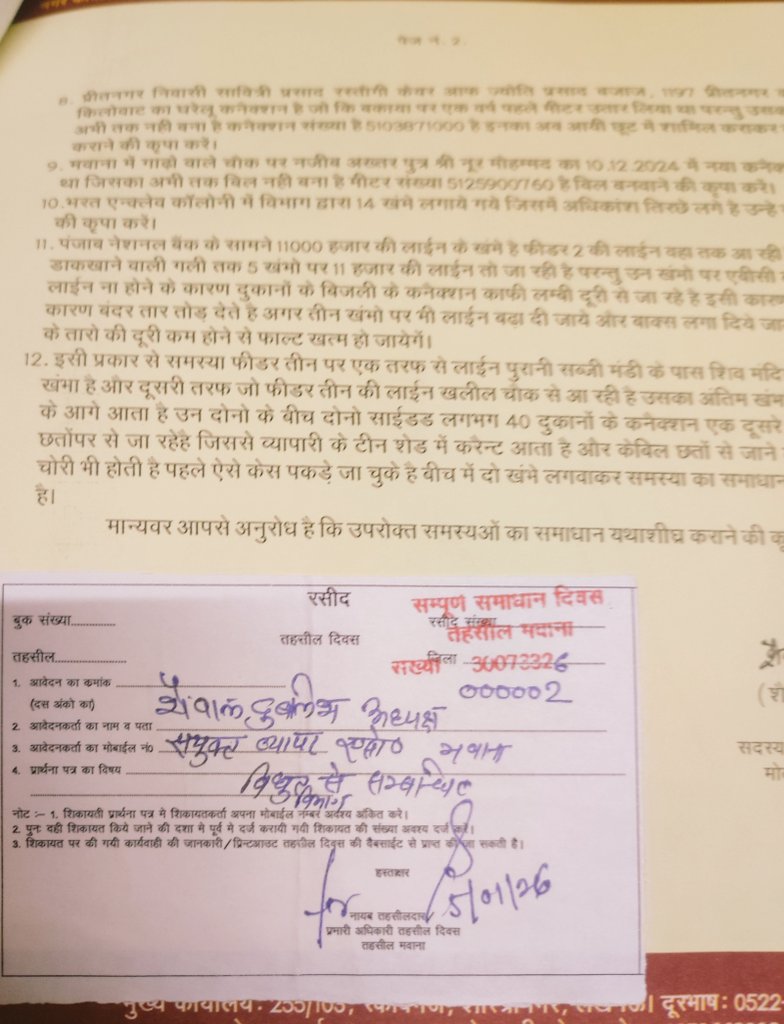 पेज नं. 2
8. प्रीतनगर निवासी सावित्री प्रसाद रस्तौगी केयर आफ ज्योति प्रसाद बजाज, 1197 प्रीतनगर
किलोवाट का घरेलू कनैक्शन है जो कि बकाया पर एक वर्ष पहले मीटर उतार लिया था परन्तु
अभी तक नही बना है कनैक्शन संख्या है 5103871000 है इनका अब आयी छूट में शामिल कराकर
कराने की कृपा करें।
9. मवाना में गाढो वाले चौक पर नजीब अख्तर पुत्र श्री नूर मौहम्मद का 10.12.2024 में नया
था जिसका अभी तक बिल नही बना है मीटर संख्या 5125900760 है बिल बनवाने की कृपा करें।
10. भरत एन्क्लेव कॉलोनी में विभाग द्वारा 14 खंभे लगाये गये जिसमें अधिकांश तिरछे लगे है उन्हे
की कृपा करें।
11. पंजाब नेशनल बैंक के सामने 11000 हजार की लाईन के खंभे है फीडर 2 की लाईन वहा तक आ रही
डाकखाने वाली गली तक 5 खंभो पर 11 हजार की लाईन तो जा रही है परन्तु उन खंभो पर एबीसी
लाईन ना होने के कारण दुकानों के बिजली के कनैक्शन काफी लम्बी दूरी से जा रहे है इसी
कारण बंदर तार तोड़ देते है अगर तीन खंभो पर भी लाईन बढ़ा दी जाये और बाक्स लगा दिये
के तारो की दूरी कम होने से फाल्ट खत्म हो जायेगें।
12. इसी प्रकार से समस्या फीडर तीन पर एक तरफ से लाईन पुरानी सब्जी मंडी के पास शिव
खंभा है और दूसरी तरफ जो फीडर तीन की लाईन खलील चौक से आ रही है उसका अंतिम
के आगे आता है उन दोनो के बीच दोनो साईडड लगभग 40 दुकानों के कनैक्शन एक दूसरे
छतोंपर से जा रहेहे जिससे व्यापारी के टीन शेड में करैन्ट आता है और केबिल छतों से जाने
चोरी भी होती है पहले ऐसे केस पकड़े जा चुके है बीच में दो खंभे लगवाकर समस्या का समाधान
है।
मान्यवर आपसे अनुरोध है कि उपरोक्त समस्यओं का समाधान यथाशीघ्र कराने की
सदस्य
रसीद
सम्पूर्ण समाधान दिवस
बुक संख्या............ रसीद संख्या
तहसील दिवस तहसील मवाना
तहसील................... जिला
संख्या 30073326
1. आवेदन का कमांक
000002
(दस अंको का)
अध्यक्ष
2. आवेदनकर्ता का नाम व पता
3. आवेदनकर्ता का मोबाईल नं० संयुक्त व्यापार मवाना
4. प्रार्थना पत्र का विषय
विधुत से सम्बन्धित
विभाग
नोट :– 1. शिकायती प्रार्थना पत्र में शिकायतकर्ता अपना मोबाईल नम्बर अवश्य अंकित करे।
2. पुनः वही शिकायत किये जाने की दशा मे पूर्व मे दर्ज करायी गयी शिकायत की संख्या अवश्य दर्ज करें।
3. शिकायत पर की गयी कार्यवाही की जानकारी/प्रिन्टआउट तहसील दिवस की वैबसाईट से प्राप्त की जा सकती है।
हस्ताक्षर
नायब तहसीलदार
प्रभारी अधिकारी तहसील दिवस
तहसील मवाना
मुख्य कार्यालय: 255/105, दूरभाष: 0522-